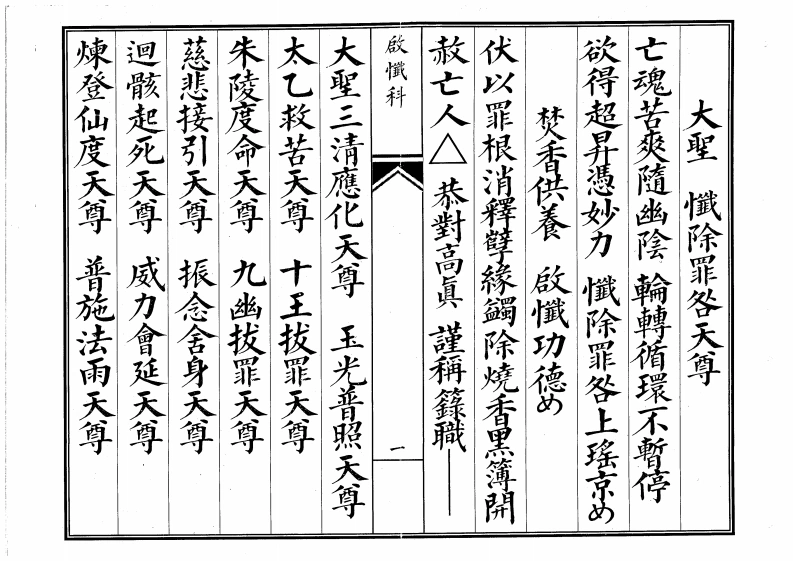 大聖　懺除罪咎天尊
亡魂苦爽隨幽陰　輪轉循環不暫停
欲得超昇憑妙力　懺除罪咎上瑤京め
焚香供養　啟懺功德め
伏以罪根消釋孽緣蠲除燒香黑簿開
赦亡人△　恭對高真　謹稱籙職——
啟懺科
一
大聖三清應化天尊　玉光普照天尊
太乙救苦天尊　十王拔罪天尊
朱陵度命天尊　九幽拔罪天尊
慈悲接引天尊　振念舍身天尊
迴骸起死天尊　威力會延天尊
煉登仙度天尊　普施法雨天尊